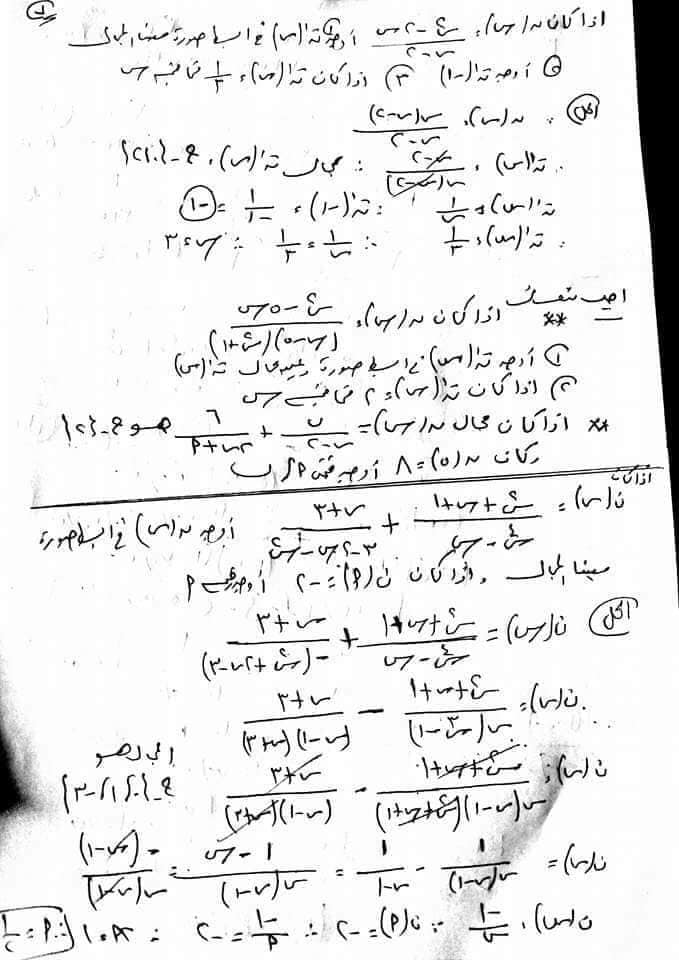 اذا كان ن(س) = (س² - ٢س)/(س - ٢) أوجد ① ن⁻¹(س) في ابسط صورة مبينا المجال
② أوجد ن⁻¹(-١) ③ اذا كان ن⁻¹(س) = ١/٣ فما قيمة س
الحل ∵ ن(س) = س(س - ٢)/(س - ٢)
∴ ن⁻¹(س) = (س - ٢)/(س(س - ٢)) ∴ مجال ن⁻¹(س) = ح - {٠، ٢}
ن⁻¹(س) = ١/س ∴ ن⁻¹(-١) = ١/-١ = -١
∵ ن⁻¹(س) = ١/٣ ∴ ١/س = ١/٣ ∴ س = ٣
اجب بنفسك ** اذا كان ن(س) = (س² - ٥س)/((س - ٥)(س² + ١))
① أوجد ن⁻¹(س) في ابسط صورة وعين مجال ن⁻¹(س)
② اذا كان ن⁻¹(س) = ٢ فما قيمة س
** اذا كان مجال ن(س) = ب/(س - ٢) + ٦/(٢س + م) هو ح - {٢}
وكان ن(٥) = ٨ أوجد قيمتي م، ب
اذا كان
ن(س) = (س² + س + ١)/(س⁴ - س) + (س + ٣)/(٣ - ٢س - س²) أوجد ن(س) في ابسط صورة
مبينا المجال واذا كان ن(م) = -٢ أوجد قيمة م
الحل ن(س) = (س² + س + ١)/(س⁴ - س) + (س + ٣)/-(س² + ٢س - ٣)
ن(س) = (س² + س + ١)/(س(س³ - ١)) - (س + ٣)/((س - ١)(س + ٣))
المجال هو
ن(س) = (س² + س + ١)/(س(س - ١)(س² + س + ١)) - (س + ٣)/((س - ١)(س + ٣)) ح - {٠، ١، -٣}
ن(س) = ١/(س(س - ١)) - ١/(س - ١) = (١ - س)/(س(س - ١)) = -(س - ١)/(س(س - ١))
ن(س) = -١/س ∵ ن(م) = -٢ ∴ -١/م = -٢ ∴ ٢م = ١ ∴ م = ١/٢